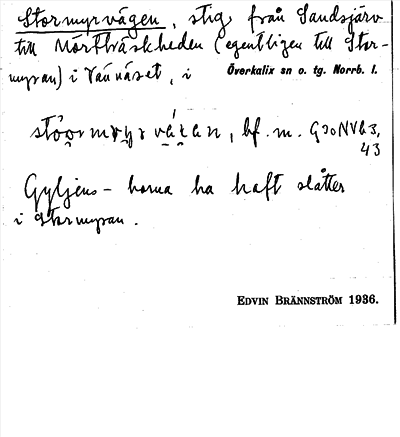 Stormyrvägen, stig från Sandsjärv
till Mörtträskheden (egentligen till Stor-
myran) i Vännäset, i Överkalix sn o. tg. Norrb. l.
bf. m. G30NVb3,
43
Gyljens-borna ha haft slåtter
i Stormyran.
EDVIN BRÄNNSTRÖM 1936.